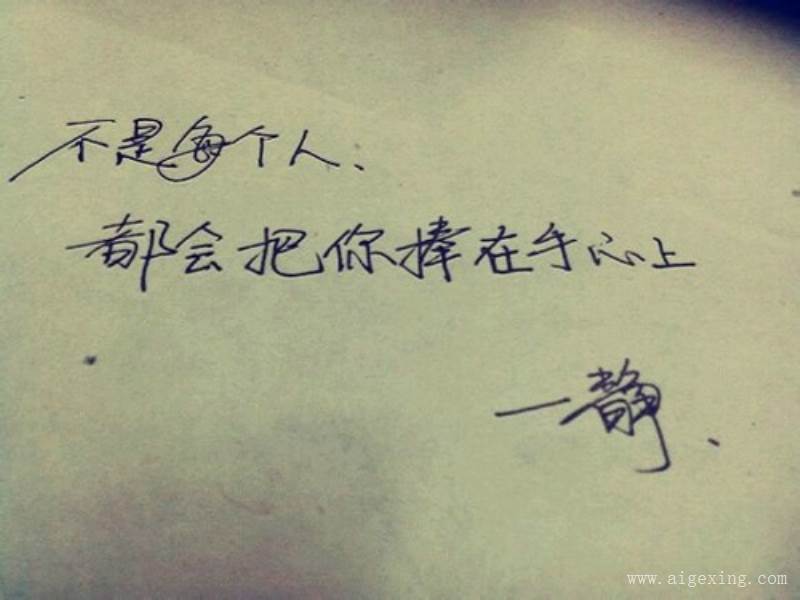 不是每个人、
都会把你捧在手心上
一静、
www.aigexing.com